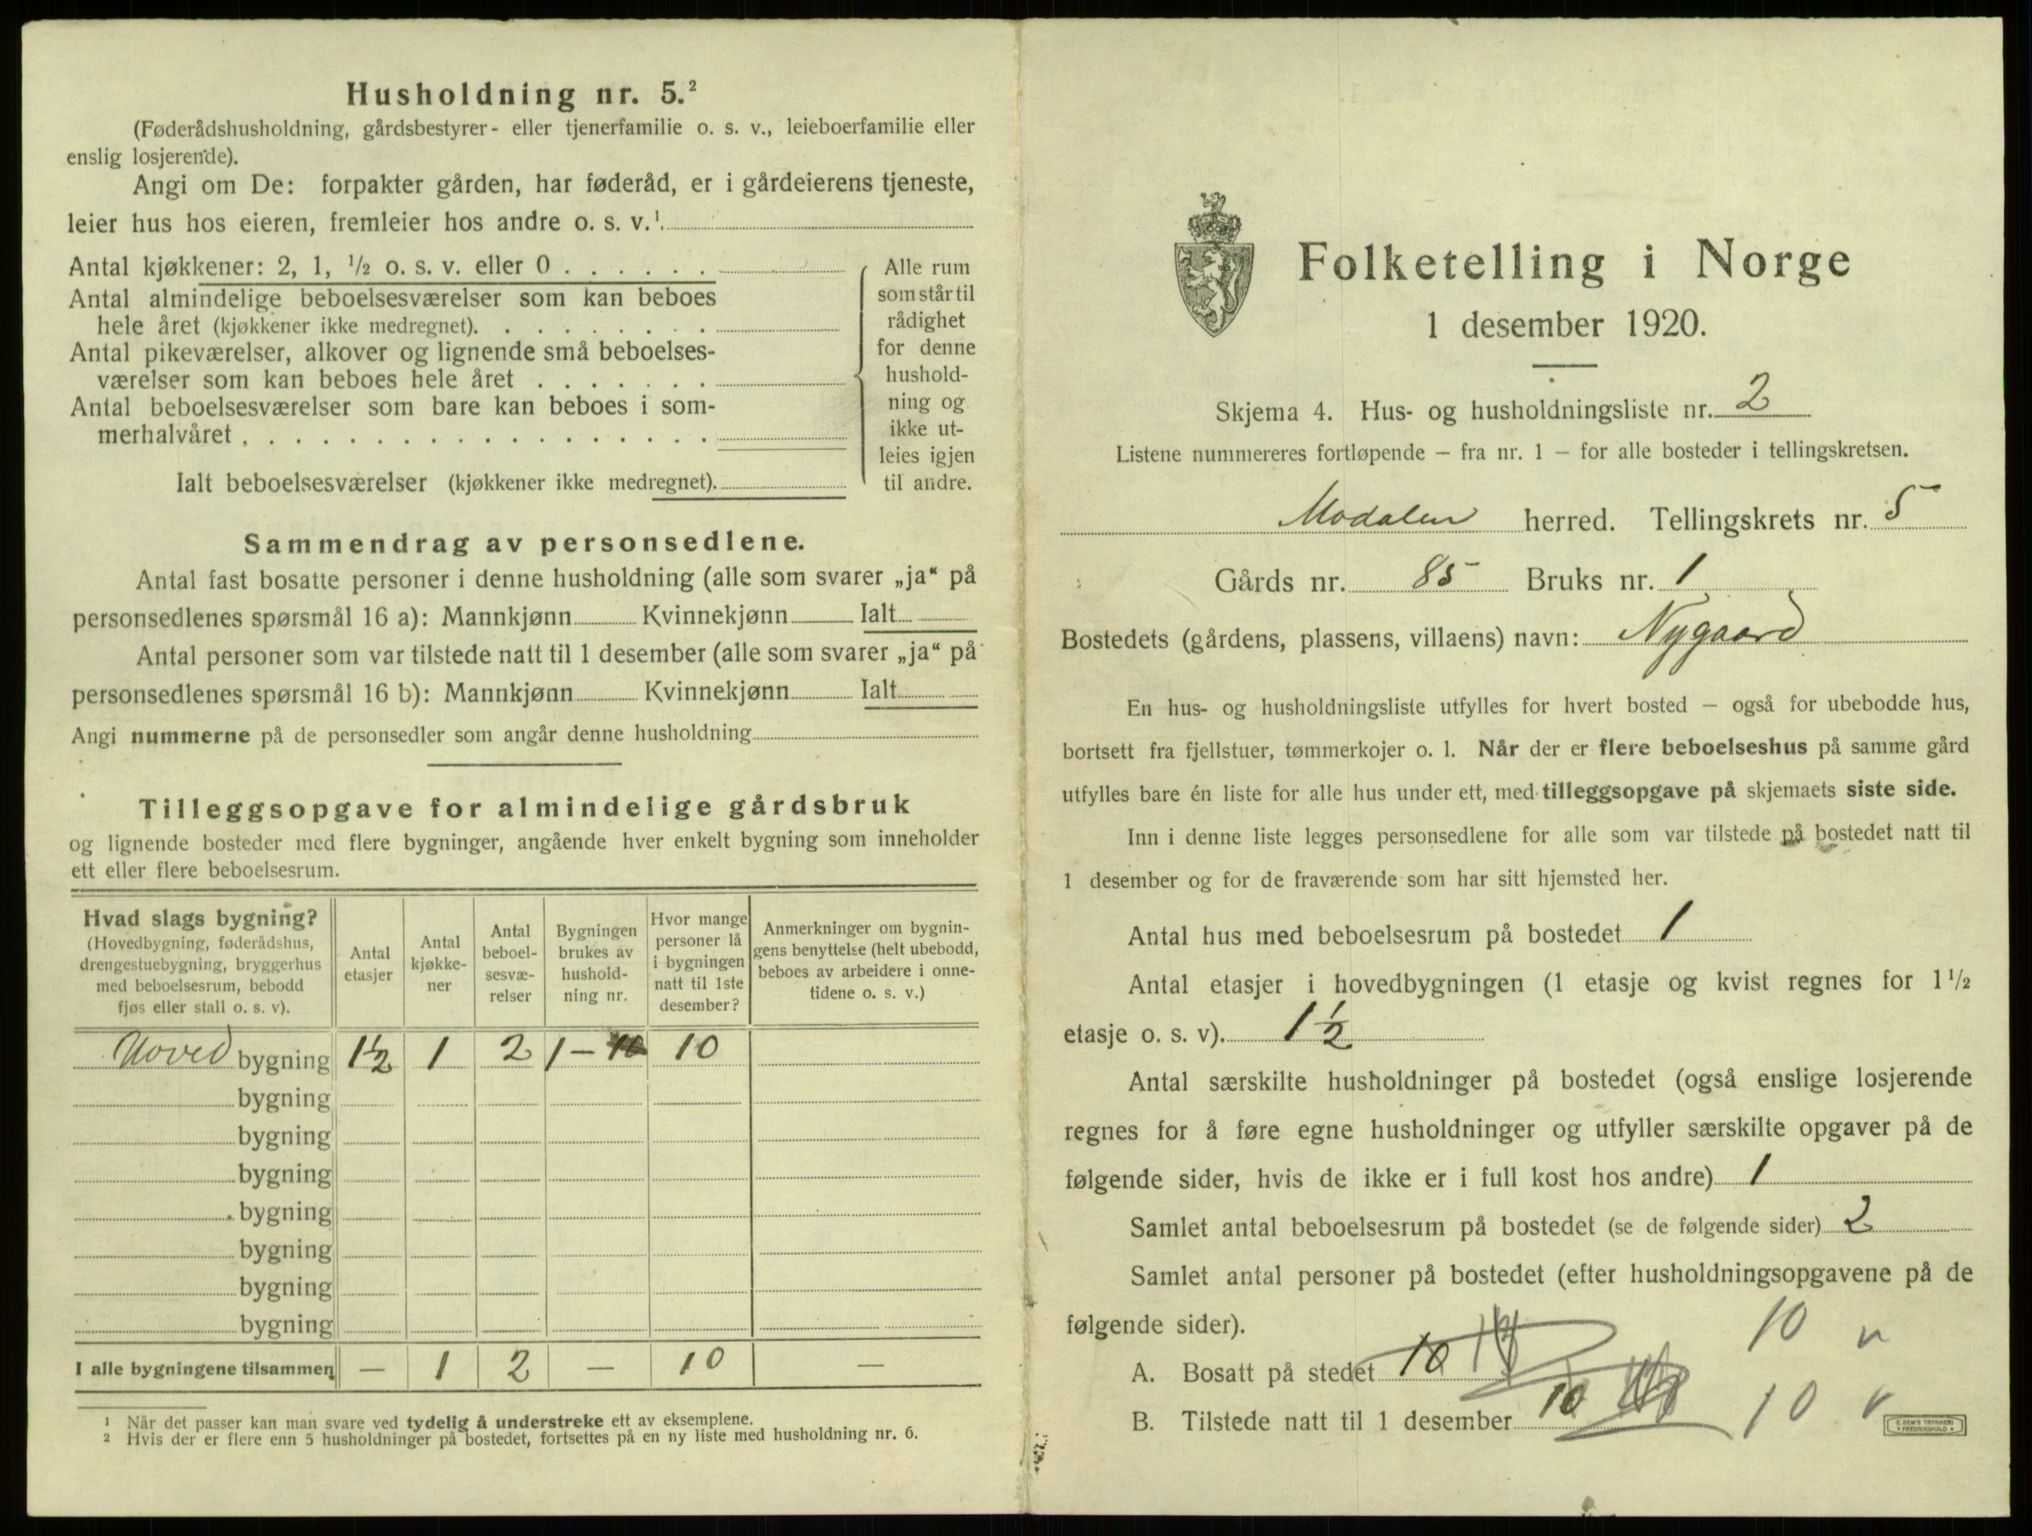 Husholdning nr. 5.²
(Føderådshusholdning, gårdsbestyrer- eller tjenerfamilie o. s. v., leieboerfamilie eller
enslig losjerende).
Angi om De: forpakter gården, har føderåd, er i gårdeierens tjeneste,
leier hus hos eieren, fremleier hos andre o. s. v.¹
Antal kjøkkener: 2, 1, ½ o. s. v. eller 0
Antal almindelige beboelsesværelser som kan beboes
hele året (kjøkkener ikke medregnet).
Antal pikeværelser, alkover og lignende små beboelses-
værelser som kan beboes hele året
Antal beboelsesværelser som bare kan beboes i som-
merhalvåret
Ialt beboelsesværelser (kjøkkener ikke medregnet).
Alle rum
som står til
rådighet
for denne
hushold-
ning og
ikke ut-
leies igjen
til andre.
Sammendrag av personsedlene.
Antal fast bosatte personer i denne husholdning (alle som svarer „ja“ på
personsedlenes spørsmål 16 a): Mannkjønn Kvinnekjønn Ialt
Antal personer som var tilstede natt til 1 desember (alle som svarer „ja“ på
personsedlenes spørsmål 16 b): Mannkjønn Kvinnekjønn Ialt
Angi nummerne på de personsedler som angår denne husholdning
Tilleggsopgave for almindelige gårdsbruk
og lignende bosteder med flere bygninger, angående hver enkelt bygning som inneholder
ett eller flere beboelsesrum.
Hvad slags bygning?
(Hovedbygning, føderådshus,
drengestuebygning, bryggerhus
med beboelsesrum, bebodd
fjøs eller stall o. s. v).
Antal
etasjer
Antal
kjøkke-
ner
Antal
beboel-
sesvæ-
relser
Bygningen
brukes av
hushold-
ning nr.
Hvor mange
personer lå
i bygningen
natt til 1ste
desember?
Anmerkninger om bygnin-
gens benyttelse (helt ubebodd,
beboes av arbeidere i onne-
tidene o. s. v.)
Hoved bygning 1½ 1 2 1 – 10
bygning
bygning
bygning
bygning
bygning
bygning
bygning
I alle bygningene tilsammen — 1 2 — 10 —
¹ Når det passer kan man svare ved tydelig å understreke ett av eksemplene.
² Hvis der er flere enn 5 husholdninger på bostedet, fortsettes på en ny liste med husholdning nr. 6.
Folketelling i Norge
1 desember 1920.
Skjema 4. Hus- og husholdningsliste nr. 2
Listene nummereres fortløpende – fra nr. 1 – for alle bosteder i tellingskretsen.
Modalen herred. Tellingskrets nr. 5
Gårds nr. 85 Bruks nr. 1
Bostedets (gårdens, plassens, villaens) navn: Nygaard
En hus- og husholdningsliste utfylles for hvert bosted – også for ubebodde hus,
bortsett fra fjellstuer, tømmerkojer o. l. Når der er flere beboelseshus på samme gård
utfylles bare én liste for alle hus under ett, med tilleggsopgave på skjemaets siste side.
Inn i denne liste legges personsedlene for alle som var tilstede på bostedet natt til
1 desember og for de fraværende som har sitt hjemsted her.
Antal hus med beboelsesrum på bostedet 1
Antal etasjer i hovedbygningen (1 etasje og kvist regnes for 1½
etasje o. s. v). 1½
Antal særskilte husholdninger på bostedet (også enslige losjerende
regnes for å føre egne husholdninger og utfyller særskilte opgaver på de
følgende sider, hvis de ikke er i full kost hos andre) 1
Samlet antal beboelsesrum på bostedet (se de følgende sider) 2
Samlet antal personer på bostedet (efter husholdningsopgavene på de
følgende sider).
A. Bosatt på stedet 10 10
B. Tilstede natt til 1 desember 10 10